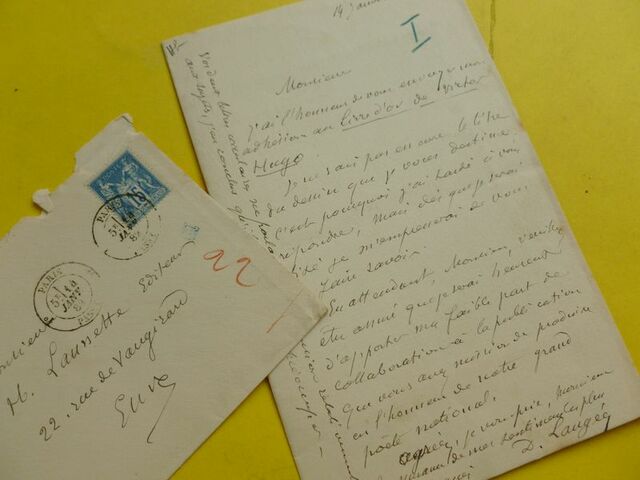 14 Janvier
I
Monsieur
J'ai l'honneur de vous envoyer mon
adhésion au livre d'or de Victor
Hugo.
Je ne sais pas encore le titre
du dessin que je vous destine
c'est pourquoi j'ai tardé à vous
répondre, mais dès que je serai
fixé je m'empresserai de vous
faire savoir.
En attendant, Monsieur, veuillez
être assuré que je serai heureux
d'apporter ma faible part de
collaboration à la publication
que vous avez mission de produire
en l'honneur de notre grand
poète national.
agréez, je vous prie, Monsieur
de mes sentiments les plus
D. Laugée
PARIS
JANV
PARIS
JANV
22
Monsieur
H. Laussette Editeur
22, rue de Vaugirard
E.V.